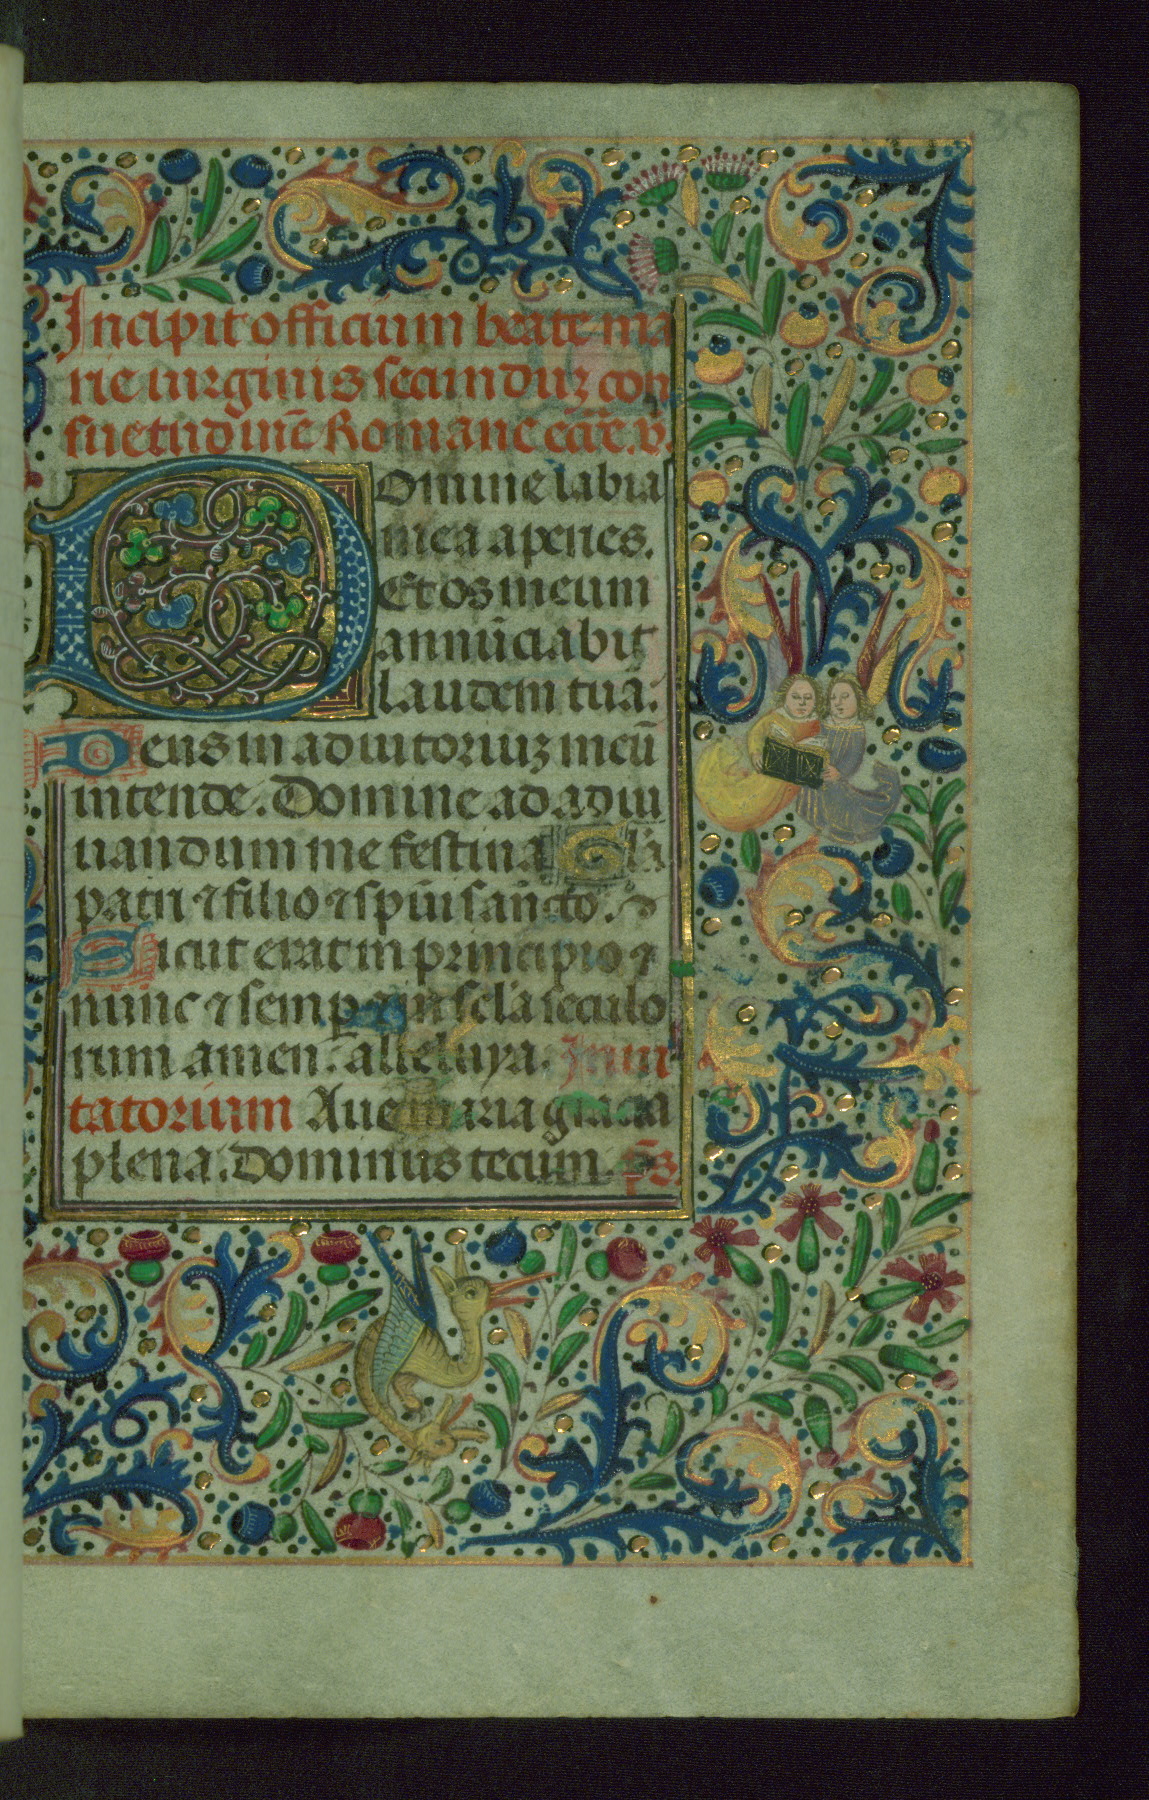 35
Incipit officium beate ma
rie uirginis secunduz con
suetudinē Romane ecc̄e. v.
Domine labia
mea aperies.
Et os meum
annūciabit
laudem tuā.
Deus in adiutoriuz meū
intende. Domine ad adiu
uandum me festina Gl̄a
patri ⁊ filio ⁊ spūi sancto.
Sicut erat in principio ⁊
nunc ⁊ semꝑ ⁊ in sc̄la seculo
rum amen. alleluya. Inui
tatorium Aue maria gracia
plena. Dominus tecum. p̄s